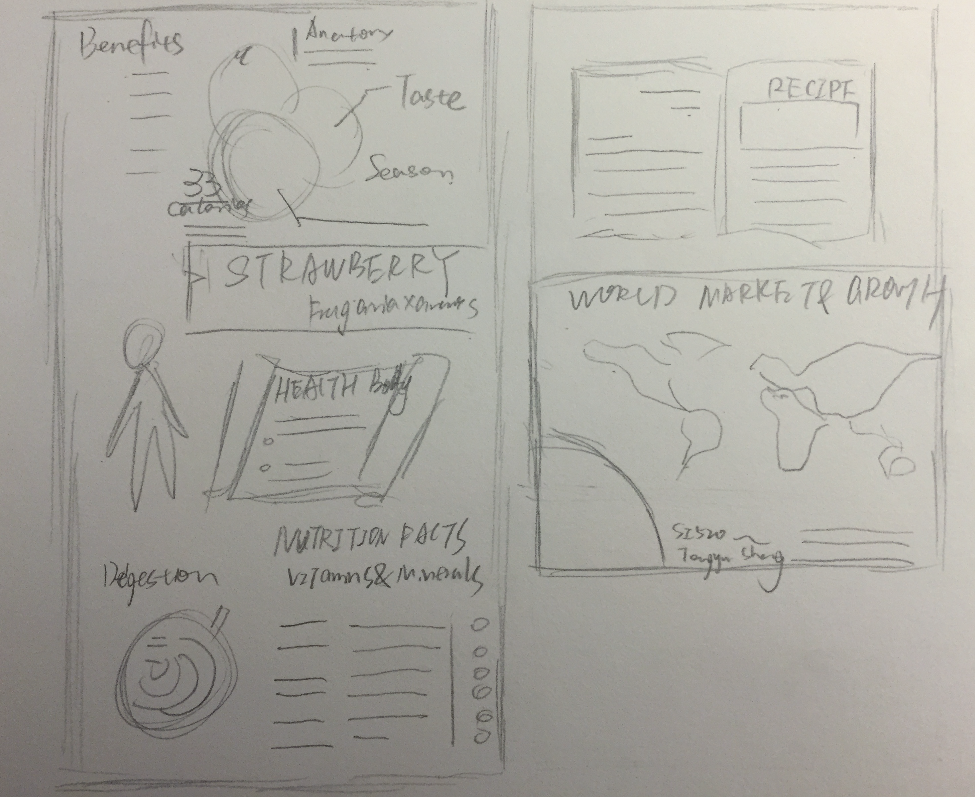 Benefits
Anatomy
Taste
Season
33
Calories
STRAWBERRY
HEALTH Body
NUTRITION FACTS
Vitamins & Minerals
Degestion
RECIPE
WORLD MARKET & GROWTH
SI520